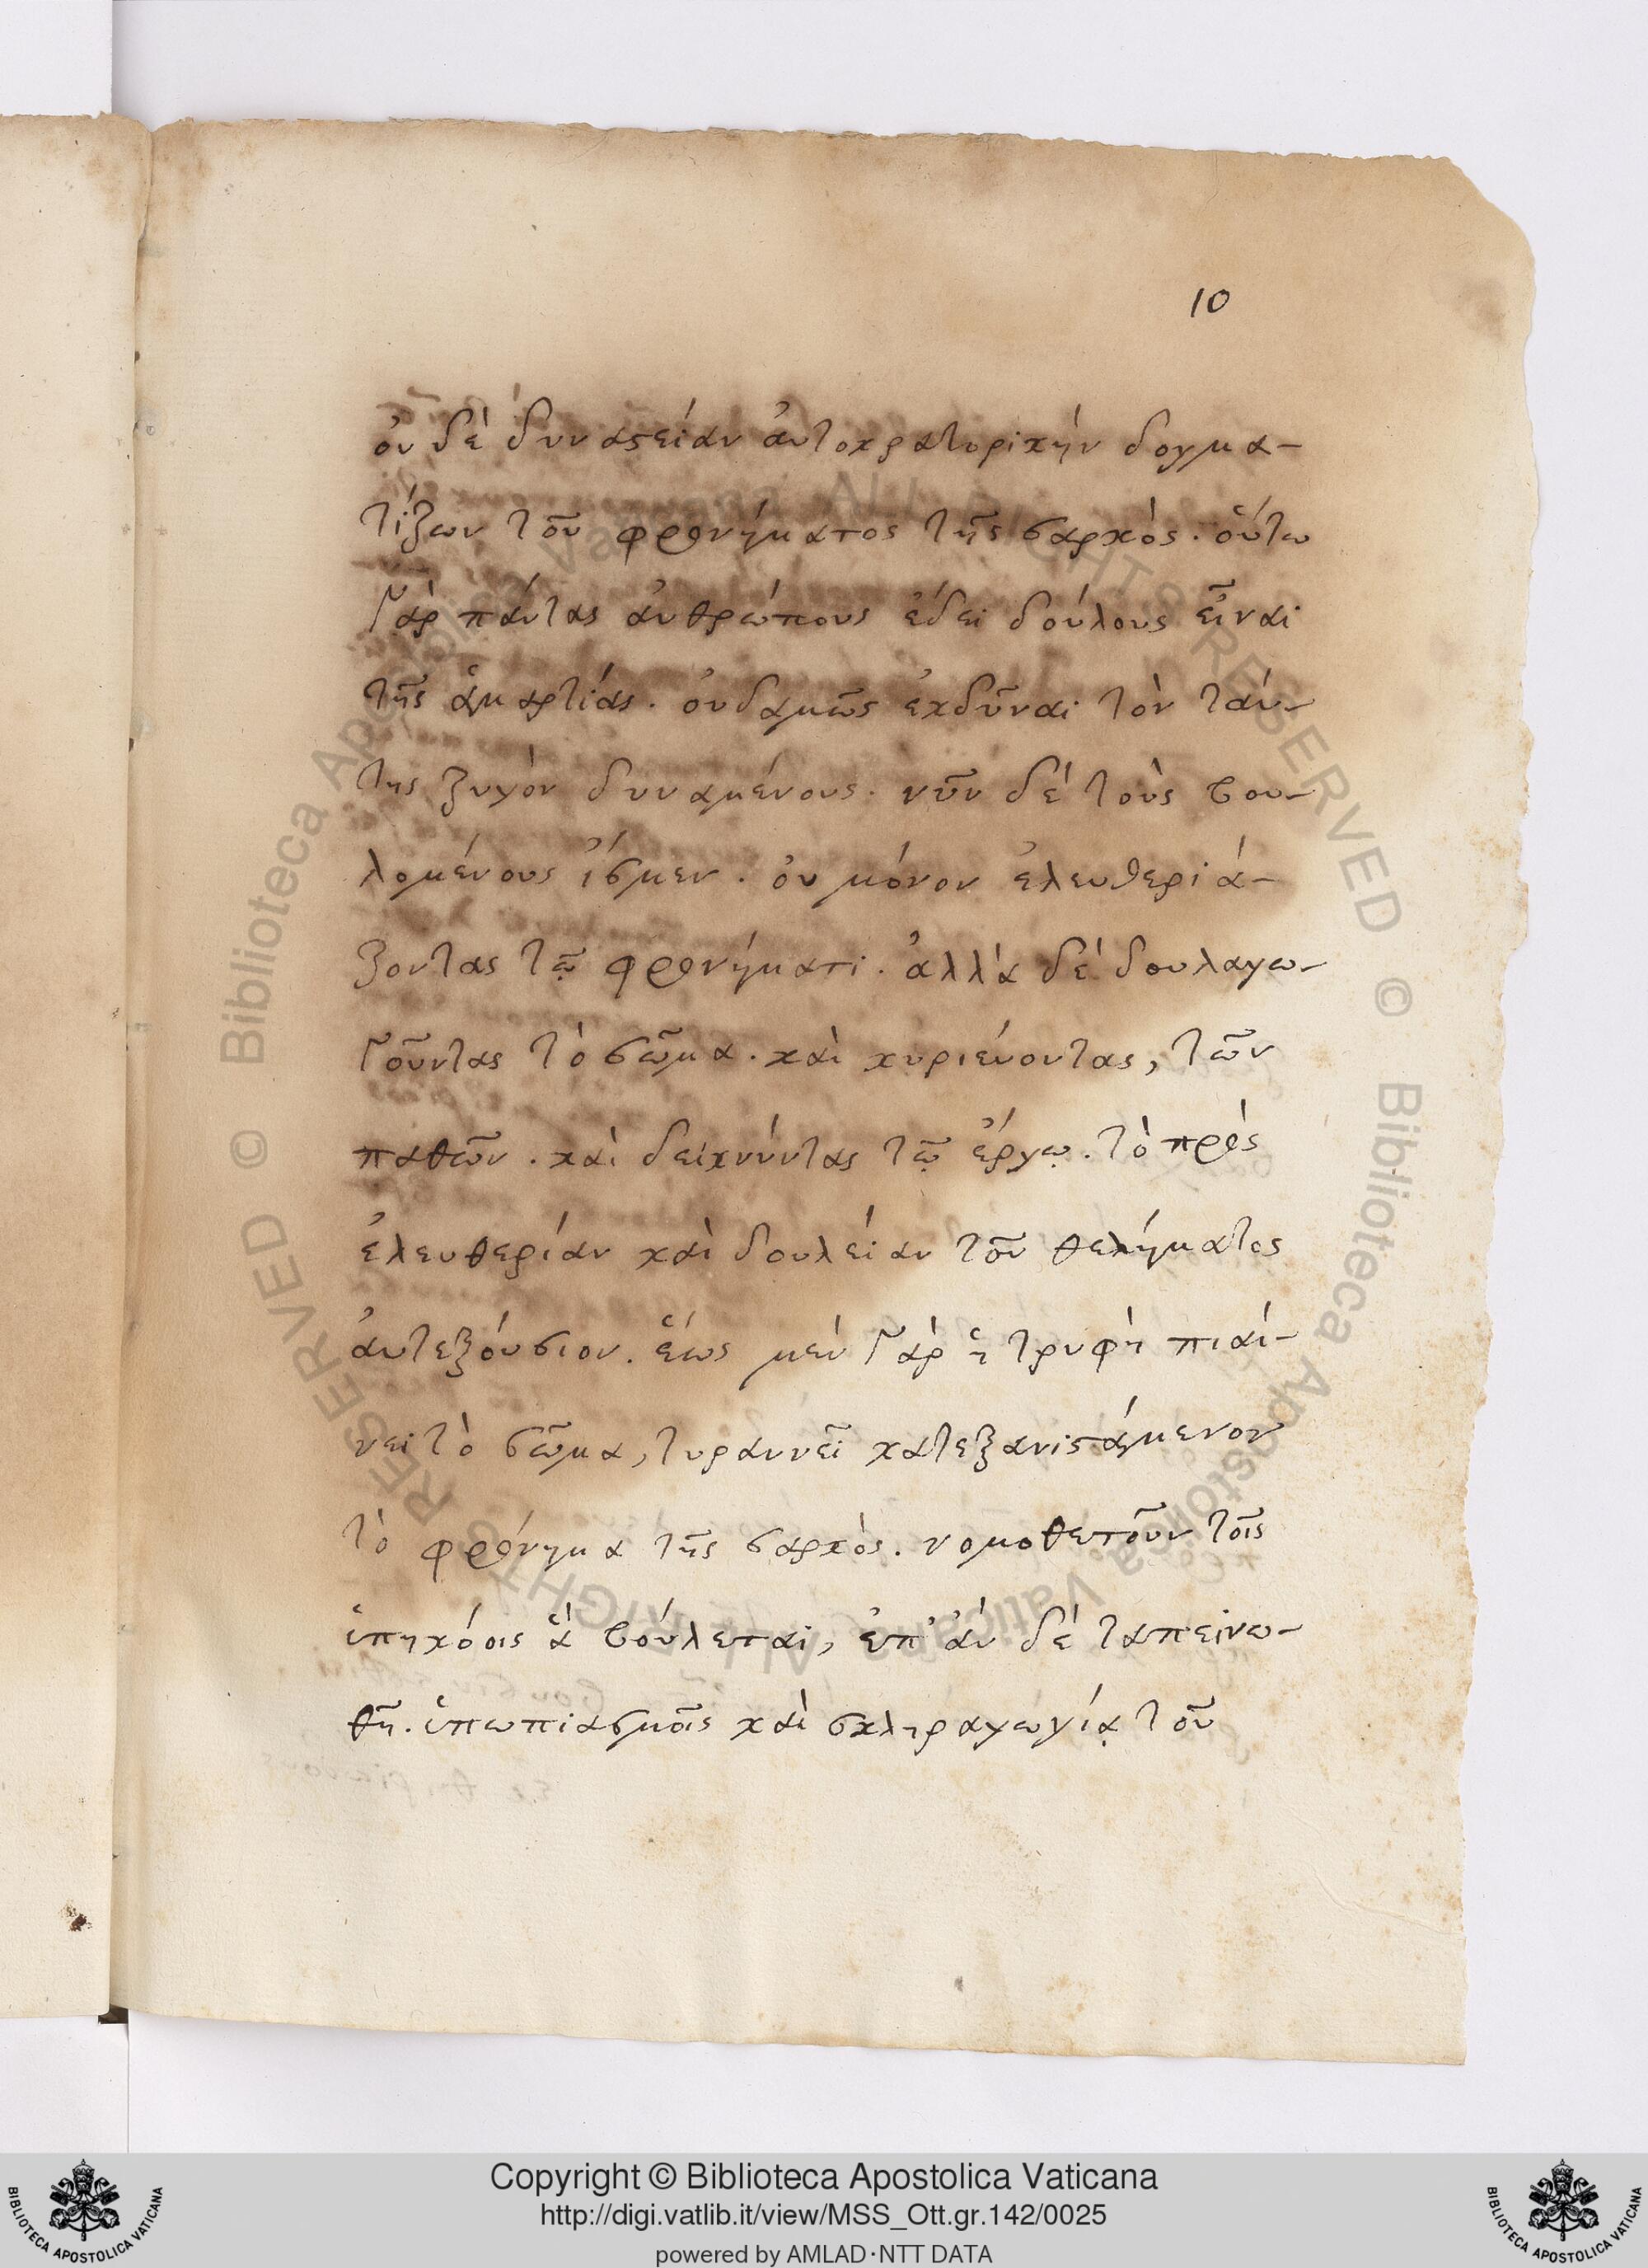 10
οὐ δὲ δυναστείαν ἀυτοκρατορικὴν δογμα-
τίζων τοῦ φρονήματος τῆς σαρκὸς. ὁύτω
γὰρ πάντας ἀνθρώπους ἔδει δούλους εἶναι
τῆς ἁμαρτίας. ὀυδαμῶς ἐκδῦναι τὸν τάυ-
της ζυγὸν δυναμένους. νῦν δὲ τοὺς βου-
λομένους ἴσμεν. ὀυ μόνον ἐλευθεριά-
ζοντας τῷ φρονήματι. ἀλλὰ δὲ δουλαγω-
γοῦντας τὸ σῶμα. καὶ κυριεύοντας, τῶν
παθῶν. καὶ δεικνύντας τῷ ἔργῳ. τὸ πρὸς
ἐλευθερίαν καὶ δουλείαν τοῦ θελήματος
ἀυτεξόυσιον. ἕως μὲν γὰρ ἡ τρυφὴ πιαί-
νει τὸ σῶμα, τυραννεῖ κατεξανιστάμενον
τὸ φρόνημα τῆς σαρκὸς. νομοθετοῦν τοῖς
ὑπηκόοις ἃ βούλεται, ἐπ' ἂν δὲ ταπεινω-
θῆ. ὑπωπιασμοῖς καὶ σκληραγωγίᾳ τοῦ
Copyright © Biblioteca Apostolica Vaticana
http://digi.vatlib.it/view/MSS_Ott.gr.142/0025
powered by AMLAD·NTT DATA
BIBLIOTECA APOSTOLICA VATICANA
BIBLIOTECA APOSTOLICA VATICANA
© Biblioteca Apostolica Vaticana ALL RIGHTS RESERVED © Biblioteca Apostolica Vaticana ALL RIGHTS RESERVED